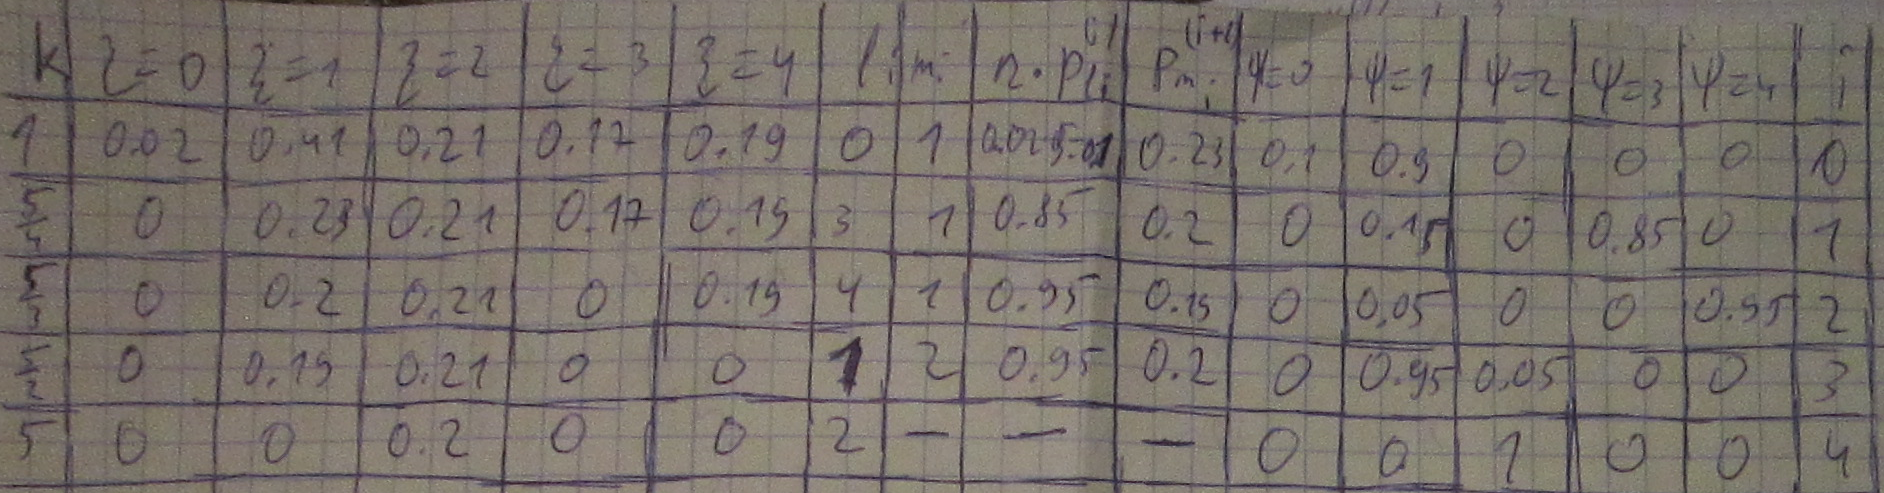 K ξ=0 ξ=1 ξ=2 ξ=3 ξ=4 l_i m_i n·p_{l_i}^{(i)} p_{m_i}^{(i+1)} ψ=0 ψ=1 ψ=2 ψ=3 ψ=4 i
1 0.02 0.41 0.21 0.17 0.19 0 1 0.02·5=0.1 0.23 0.1 0.9 0 0 0 0
5/4 0 0.23 0.21 0.17 0.19 3 1 0.85 0.2 0 0.15 0 0.85 0 1
5/3 0 0.2 0.21 0 0.19 4 1 0.95 0.19 0 0.05 0 0 0.95 2
5/2 0 0.19 0.21 0 0 1 2 0.95 0.2 0 0.95 0.05 0 0 3
5 0 0 0.2 0 0 2 — — — 0 0 1 0 0 4